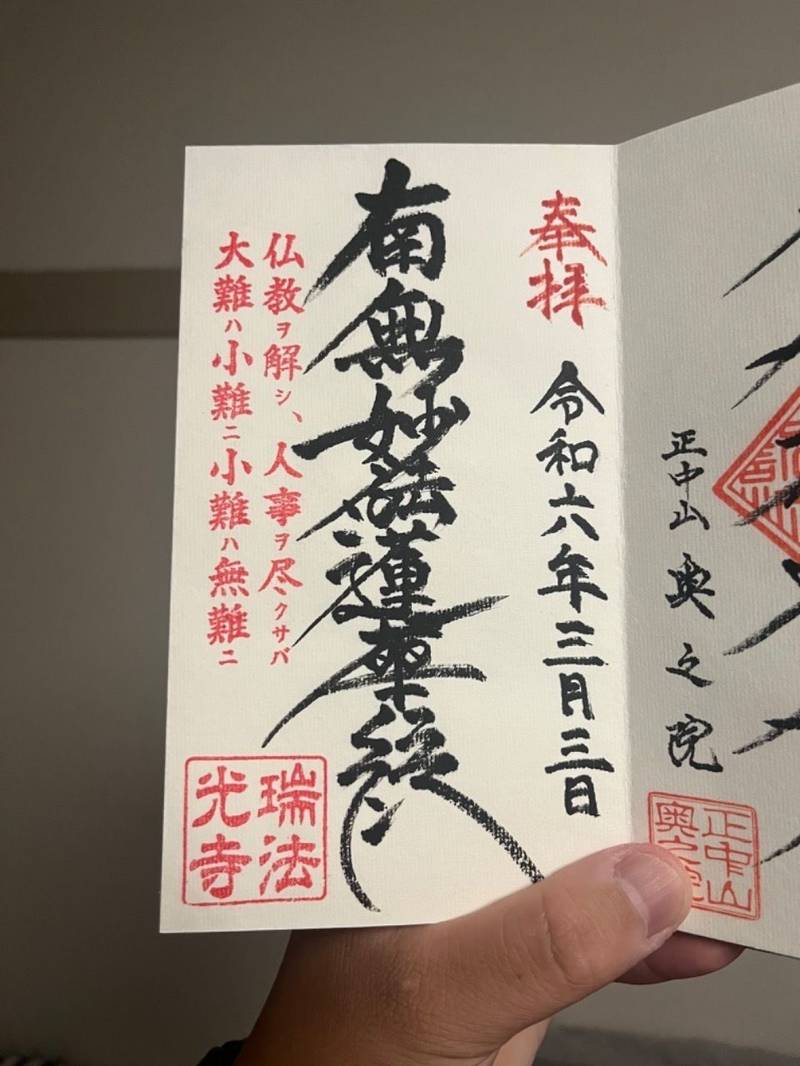 正中山 奥之院
正中山
奥之院
奉拝
令和六年三月三日
南無妙法蓮華経
仏教ヲ解シ、人事ヲ尽クサバ
大難ハ小難ニ小難ハ無難ニ
瑞法
光寺